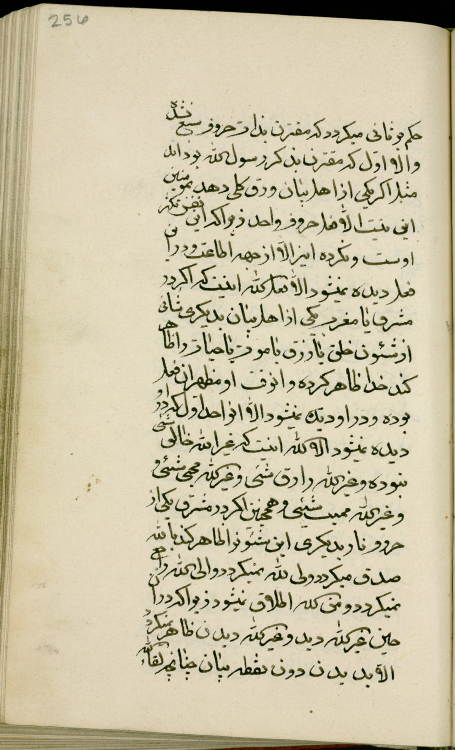 256
حکم فوقانی میکردد که مقترن بذات حروف سبع نشده
والا اول که مقترن بذکر رسول الله بوده اند
مثلا اکر یکی از اهل بیان ورق کلی دهد بمومنین
این نیست الا فعل حروف واحد زیرا که این
اوست و نکرده این را الا از جهة اطاعت و در او
فعل دیده نمیشود الا فعل الله اینست که اکر در
مشرق یا مغرب یکی از اهل بیان بدیکری شانی
از شئون خلق یا رزق یا موت یا حیات را ظاهر
کند خدا ظاهر کرده و انوقت او مظهر ان فعل
بوده و در او دیده نمیشود الا واحد اول که در او
دیده نمیشود الا الله اینست که غیر الله خالق شئی
نبوده و غیر الله رازق شئی و غیر الله محیی شئی و
و غیر الله ممیت شئی و همچنین اکر در مشرق یکی از
حروف نار بدیکری این شئون را ظاهر کند بالله
صدق میکردد ولی لله نمیکردد والی الله راجع
نمیکردد و من الله اطلاق نمیشود زیرا که در ان
حین غیر الله دید و غیر الله دیدن ظاهر نمیکردد
الا بدیدن دون نقطه بیان چنانچه لقاء الله